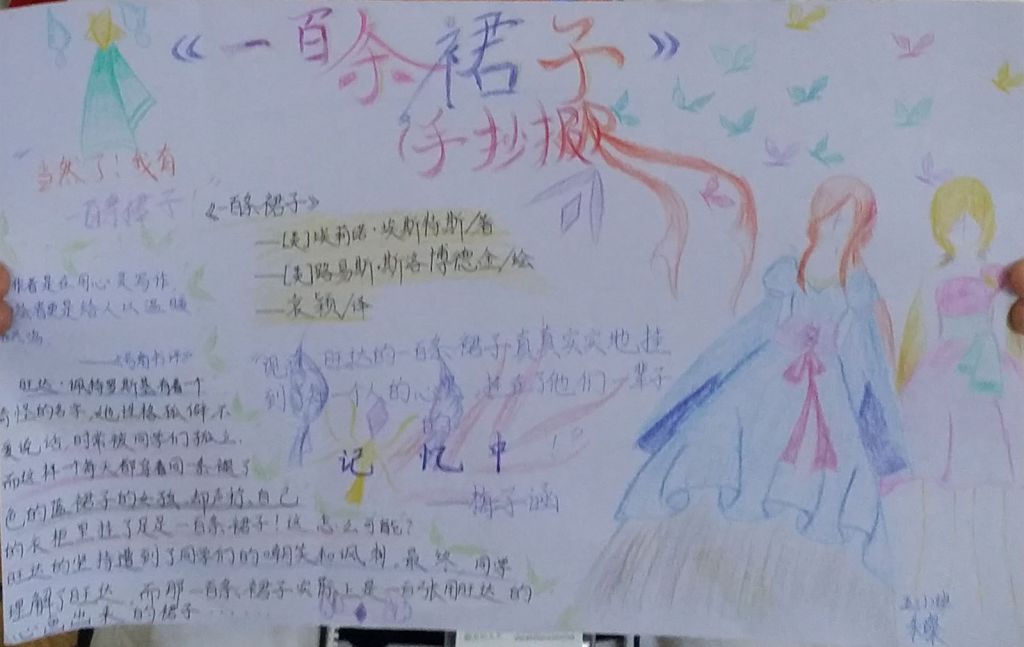 《一百条裙子》
手抄报
当然了!我有
一百条裙子
《一百条裙子》
—[美]埃莉诺·埃斯特斯/著
—[美]路易斯·斯洛博德金/绘
—袁颖/译
作者是在用心是写作,
绘者更是给人以温暖
现在,旺达的一百条裙子真真实实地挂
到了每一个人的心里,挂在了他们一辈子
的
记忆中
——梅子涵
旺达·佩特罗斯基有着一个
奇怪的名字,她性格孤僻不
爱说话,时常被同学们孤立,
而这样一个每天都穿着同一条褪了
色的蓝裙子的女孩,却声称自己
的衣柜里挂了足足一百条裙子!这怎么可能?
旺达的坚持遭到了同学们的嘲笑和讽刺。最终,同学
理解了旺达,而那一百条裙子实际上是一百张用旺达的
心画出来的裙子……